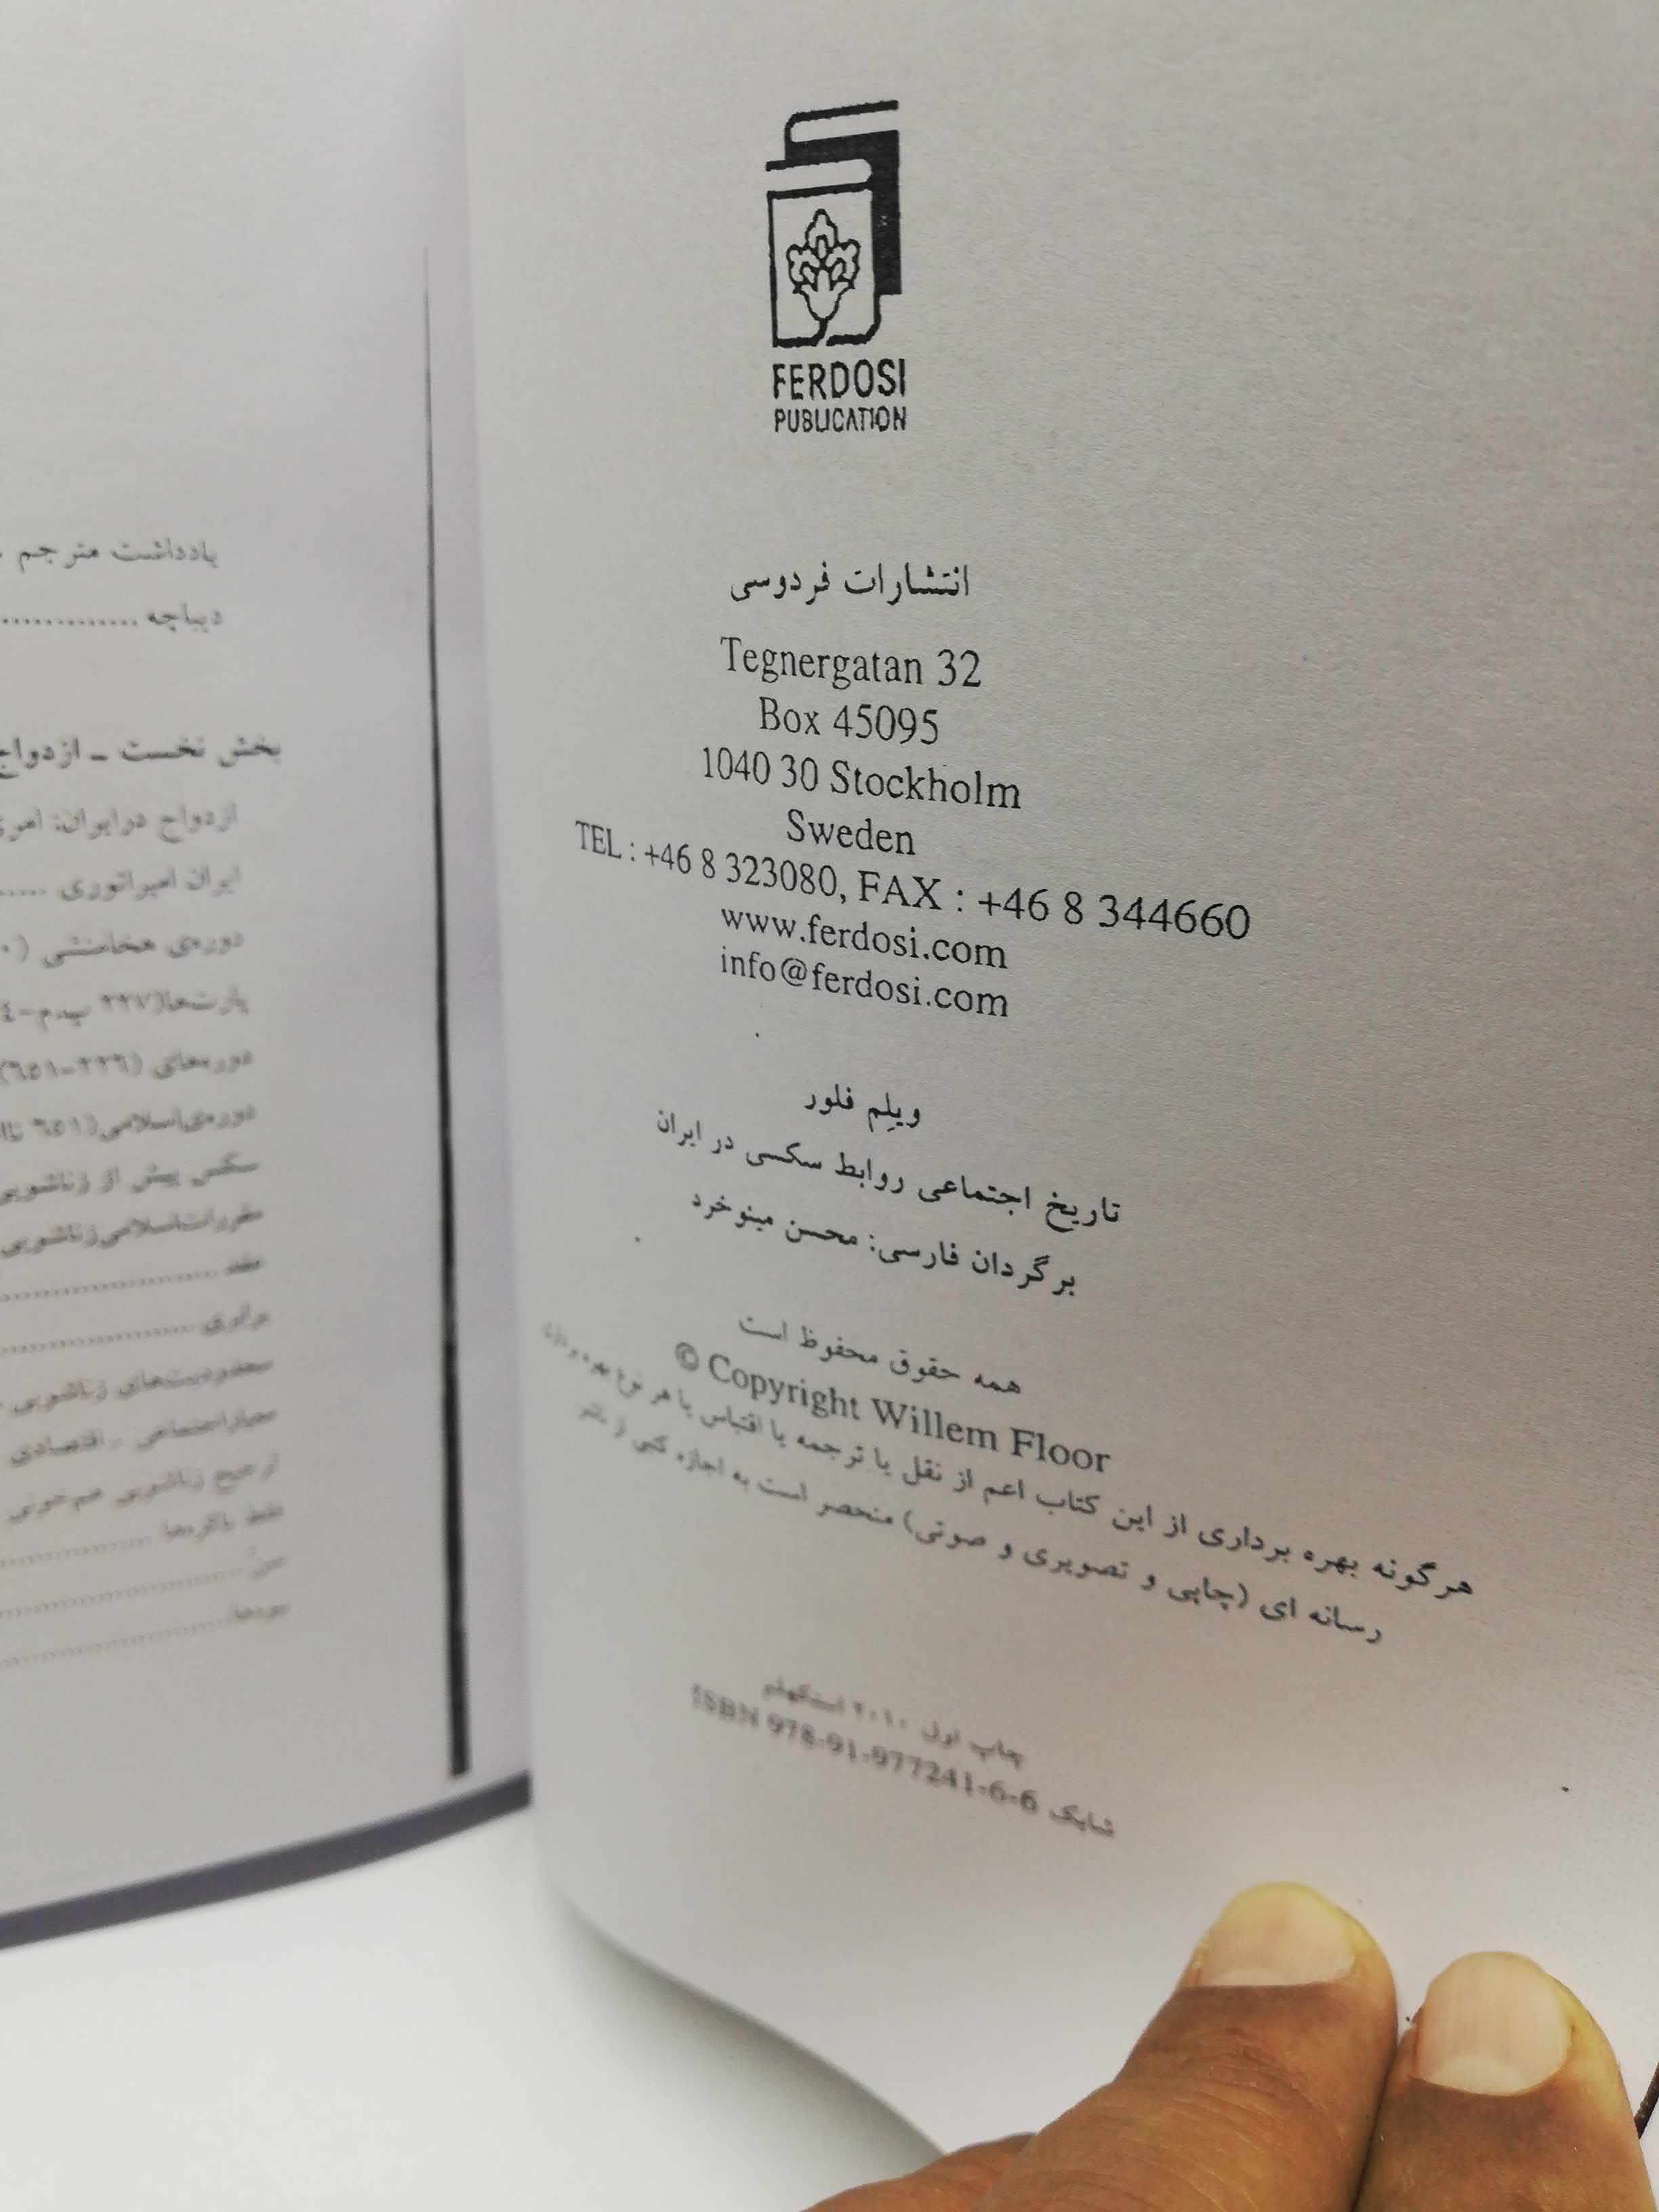 FERDOSI
PUBLICATION
انتشارات فردوسی
Tegnergatan 32
Box 45095
1040 30 Stockholm
Sweden
TEL : +46 8 323080, FAX : +46 8 344660
www.ferdosi.com
info@ferdosi.com
ویلِم فلور
تاریخ اجتماعی روابط سکسی در ایران
برگردان فارسی: محسن مینوخرد
همه حقوق محفوظ است
© Copyright Willem Floor
هرگونه بهره برداری از این کتاب اعم از نقل یا ترجمه یا اقتباس یا هر نوع بهره
رسانه ای (چاپی و تصویری و صوتی) منحصر است به اجازه کتبی
چاپ اول ۲۰۱۰ استکهلم
شابک ISBN 978-91-977241-6-6
یادداشت مترجم
دیباچه ..............
بخش نخست ـ ازدواج
ازدواج در ایران: امری
ایران امپراتوری .....
دوره‌ی هخامنشی (
پارت‌ها(۲۴۷ پ.م-
دوره‌های (۲۲۶-۶۵۱)
دوره‌ی‌اسلامی(۶۵۱ تا
سکس پیش از زناشویی
مقررات‌اسلامی‌زناشویی
عقد ..............
برابری ..............
محدودیت‌های زناشویی
معیاراجتماعی - اقتصادی
ترجیح زناشویی هم‌خونی
فقط باکره‌ها ..............
سنّ ..............